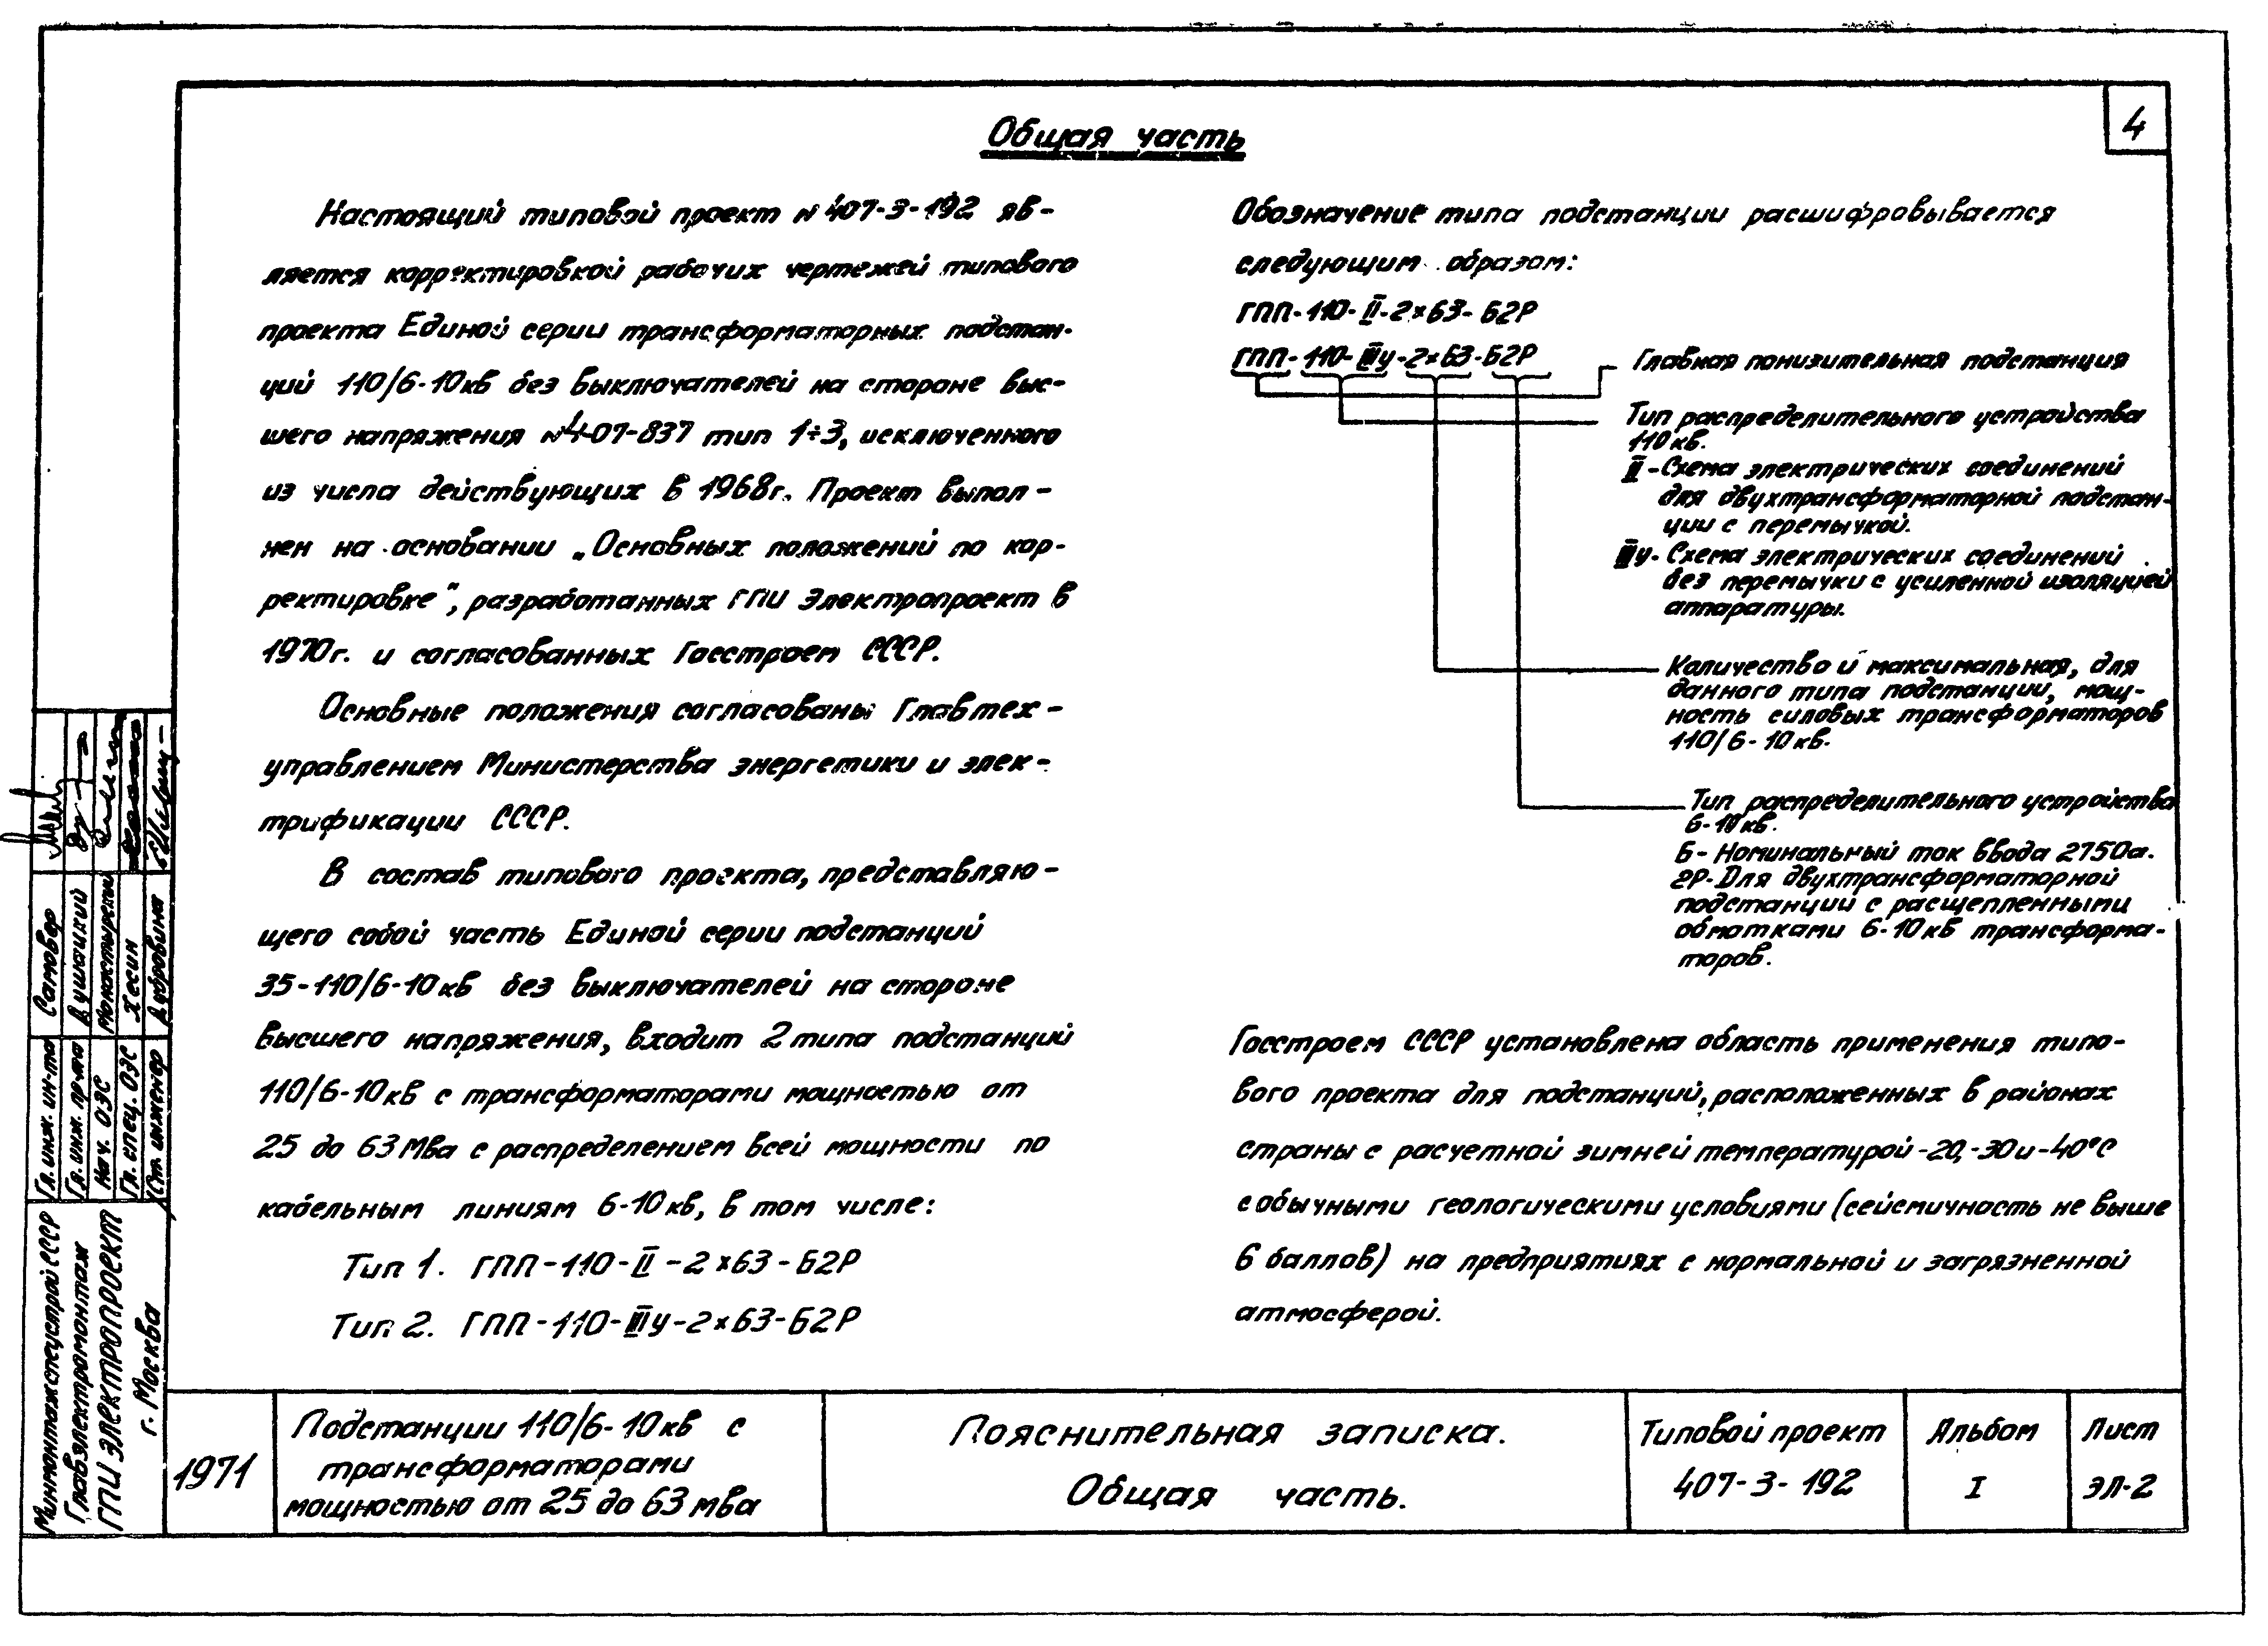 4
Общая часть
Настоящий типовой проект № 407-3-192 яв-
ляется корректировкой рабочих чертежей типового
проекта Единой серии трансформаторных подстан-
ций 110/6-10кв без выключателей на стороне выс-
шего напряжения №407-837 тип 1÷3, исключенного
из числа действующих в 1968г. Проект выпол-
нен на основании „Основных положений по кор-
ректировке", разработанных ГПИ Электропроект в
1970г. и согласованных Госстроем СССР.
Основные положения согласованы Главтех-
управлением Министерства энергетики и элек-
трификации СССР.
В состав типового проекта, представляю-
щего собой часть Единой серии подстанций
35-110/6-10кв без выключателей на стороне
высшего напряжения, входит 2 типа подстанций
110/6-10кв с трансформаторами мощностью от
25 до 63 Мва с распределением всей мощности по
кабельным линиям 6-10кв, в том числе:
Тип 1. ГПП-110-II-2×63-Б2Р
Тип 2. ГПП-110-IIIу-2×63-Б2Р
Обозначение типа подстанции расшифровывается
следующим образом:
ГПП-110-II-2×63-Б2Р
ГПП-110-IIIу-2×63-Б2Р
Главная понизительная подстанция
Тип распределительного устройства
110кв.
II-Схема электрических соединений
для двухтрансформаторной подстан-
ции с перемычкой.
IIIу-Схема электрических соединений
без перемычки с усиленной изоляцией
аппаратуры.
Количество и максимальная, для
данного типа подстанции, мощ-
ность силовых трансформаторов
110/6-10кв.
Тип распределительного устройства
6-10кв.
Б-Номинальный ток ввода 2750а.
2Р-Для двухтрансформаторной
подстанции с расщепленными
обмотками 6-10кв трансформа-
торов.
Госстроем СССР установлена область применения типо-
вого проекта для подстанций, расположенных в районах
страны с расчетной зимней температурой -20,-30 и -40°С
с обычными геологическими условиями (сейсмичность не выше
6 баллов) на предприятиях с нормальной и загрязненной
атмосферой.
Гл. инж. ин-та Самовер
Гл. инж. пр-та
Нач. ОЭС Монастырский
Гл. спец. ОЭС Хесин
Ст. инженер Дубровина
Минмонтажспецстрой СССР
Главэлектромонтаж
ГПИ ЭЛЕКТРОПРОЕКТ
г. Москва
1971
Подстанции 110/6-10кв с
трансформаторами
мощностью от 25 до 63 мва
Пояснительная записка.
Общая часть.
Типовой проект
407-3-192
Альбом
I
Лист
ЭЛ-2